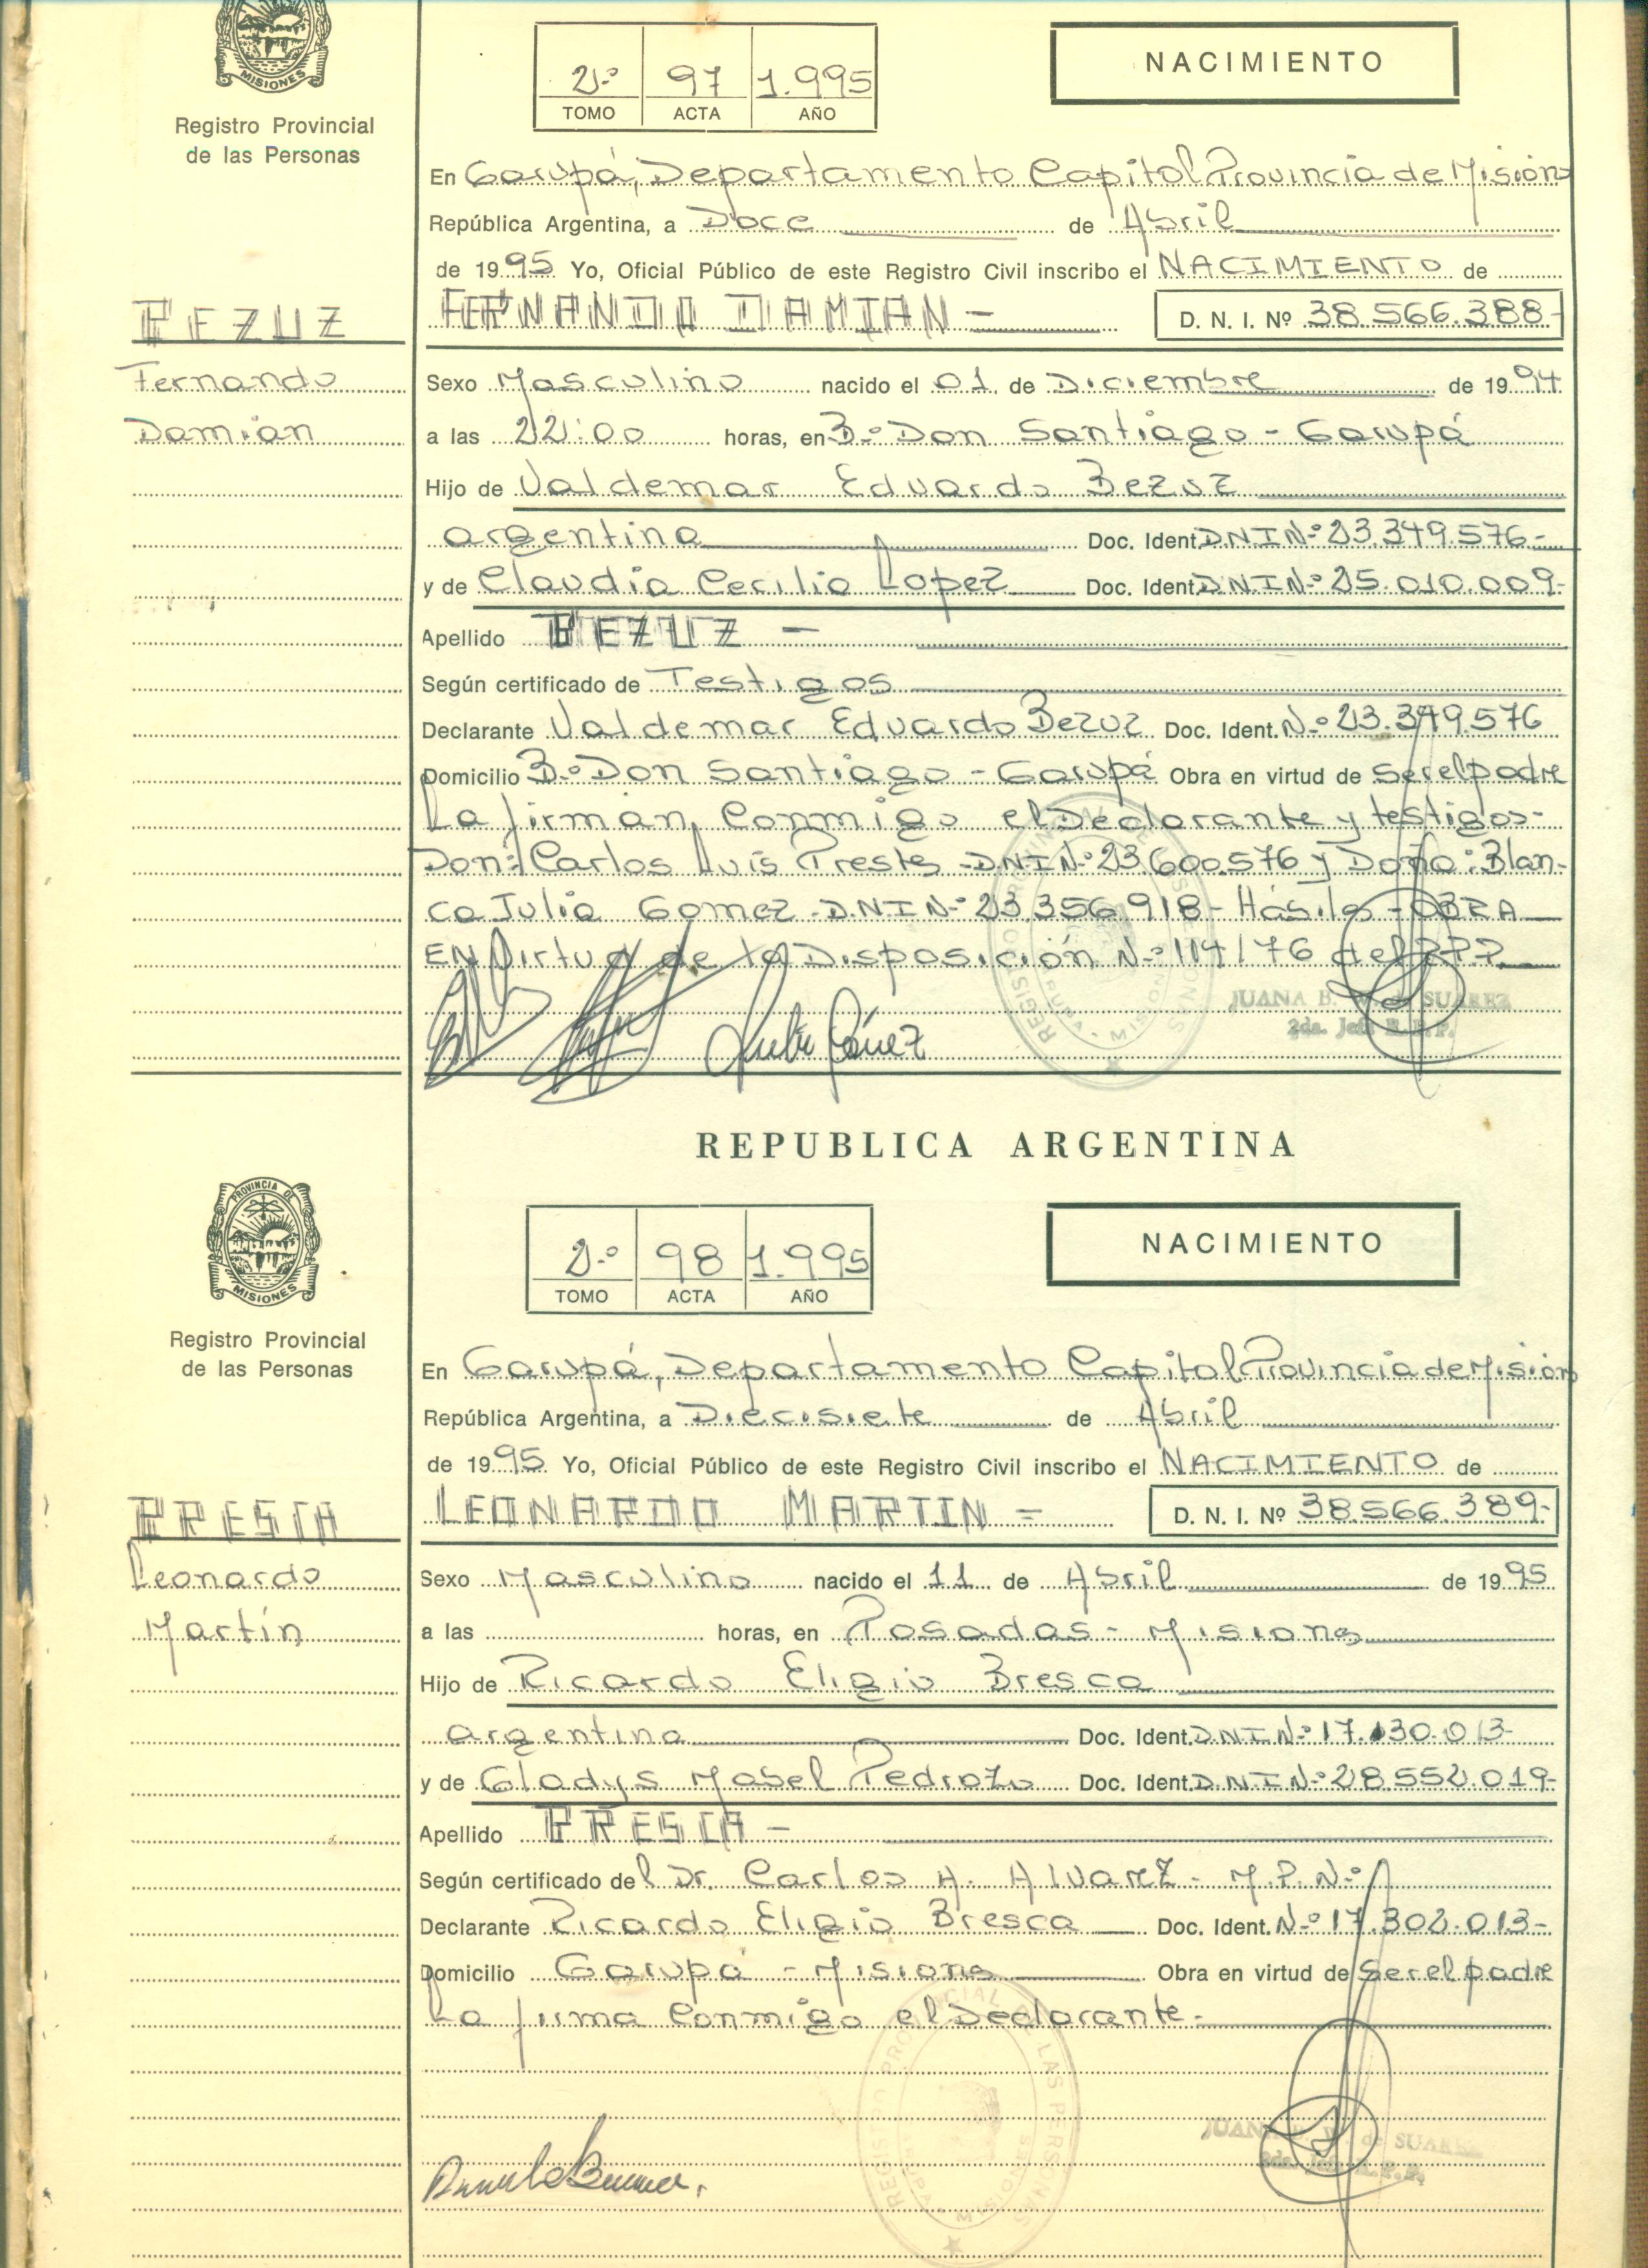 MISIONES
Registro Provincial
de las Personas
2º 97 1.995
TOMO ACTA AÑO
NACIMIENTO
En Garupá, Departamento Capital Provincia de Misiones
República Argentina, a Doce de Abril
de 1995 Yo, Oficial Público de este Registro Civil inscribo el NACIMIENTO de
BEZUZ
FERNANDO DAMIAN - D. N. I. Nº 38.566.388-
Fernando
Damian
Sexo Masculino nacido el 01 de Diciembre de 1994
a las 22:00 horas, en Bº Don Santiago - Garupá
Hijo de Valdemar Eduardo Bezuz
argentina Doc. Ident. D.N.I Nº 23.349.576-
y de Claudia Cecilia Lopez Doc. Ident. D.N.I Nº 25.010.009-
Apellido BEZUZ -
Según certificado de Testigos
Declarante Valdemar Eduardo Bezuz Doc. Ident. Nº 23.349.576
Domicilio Bº Don Santiago - Garupá Obra en virtud de Ser el padre
La firman Conmigo el Declarante y testigos-
Don: Carlos Luís Prestes - DNI Nº 23.600.576 y Doña: Blan-
ca Julia Gomez - D.N.I Nº 23.356.918 - Hábiles - OBRA
EN Virtud de la Disposición Nº 114/76 del RPP
JUANA B. W. de SUAREZ
2da. Jefa R.P.P.
REPUBLICA ARGENTINA
PROVINCIA DE
MISIONES
Registro Provincial
de las Personas
2º 98 1.995
TOMO ACTA AÑO
NACIMIENTO
En Garupá, Departamento Capital Provincia de Misiones
República Argentina, a Diecisiete de Abril
de 1995 Yo, Oficial Público de este Registro Civil inscribo el NACIMIENTO de
BRESCA
LEONARDO MARTIN = D. N. I. Nº 38.566.389-
Leonardo
Martín
Sexo Masculino nacido el 11 de Abril de 1995
a las horas, en Posadas - Misiones
Hijo de Ricardo Eligio Bresca
argentina Doc. Ident. D.N.I Nº 17.30.013-
y de Gladys Mabel Pedrozo Doc. Ident. D.N.I Nº 28.552.019-
Apellido BRESCA -
Según certificado del Dr. Carlos A. Alvarez - M.P. Nº
Declarante Ricardo Eligio Bresca Doc. Ident. Nº 17.302.013-
Domicilio Garupá - Misiones Obra en virtud de Ser el padre
La firma Conmigo el Declarante-
REGISTRO PROVINCIAL DE LAS PERSONAS
JUANA B. W. de SUAREZ
2da. Jefa R.P.P.